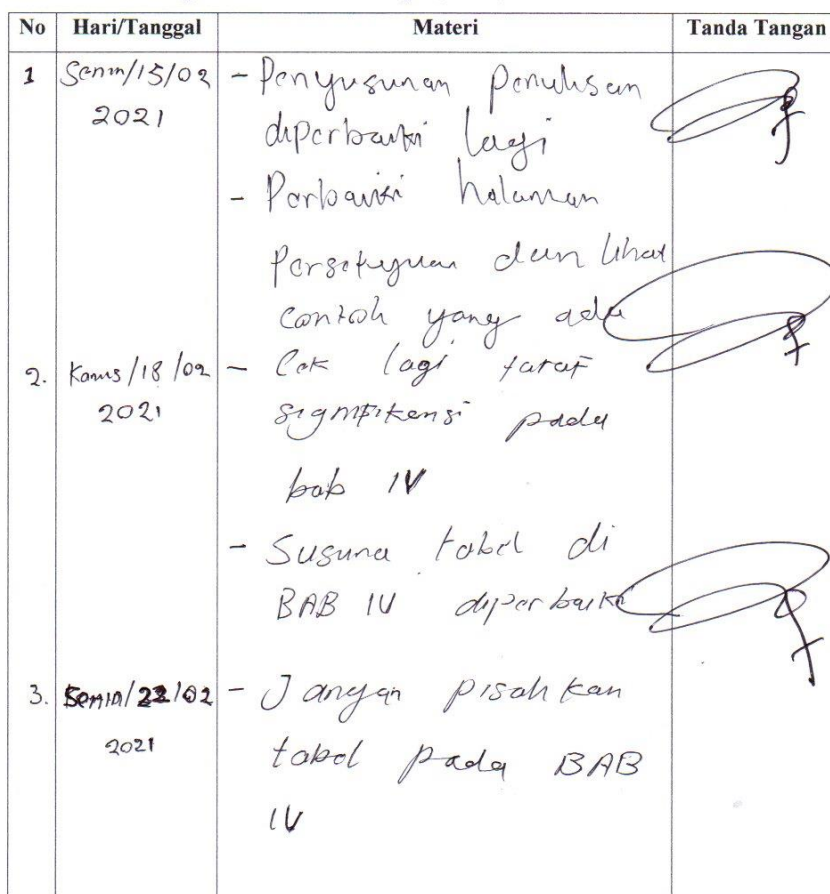 No Hari/Tanggal Materi Tanda Tangan
1 Senin/15/02 - Penyusunan Penulisan
2021 diperbaiki lagi
- Perbaiki halaman
Persetujuan dan lihat
contoh yang ada
2. Kamis/18/02 - Cek lagi taraf
2021 signifikansi pada
bab IV
- Susuna tabel di
BAB IV diperbaiki
3. Senin/22/02 - Jangan pisahkan
2021 tabel pada BAB
IV